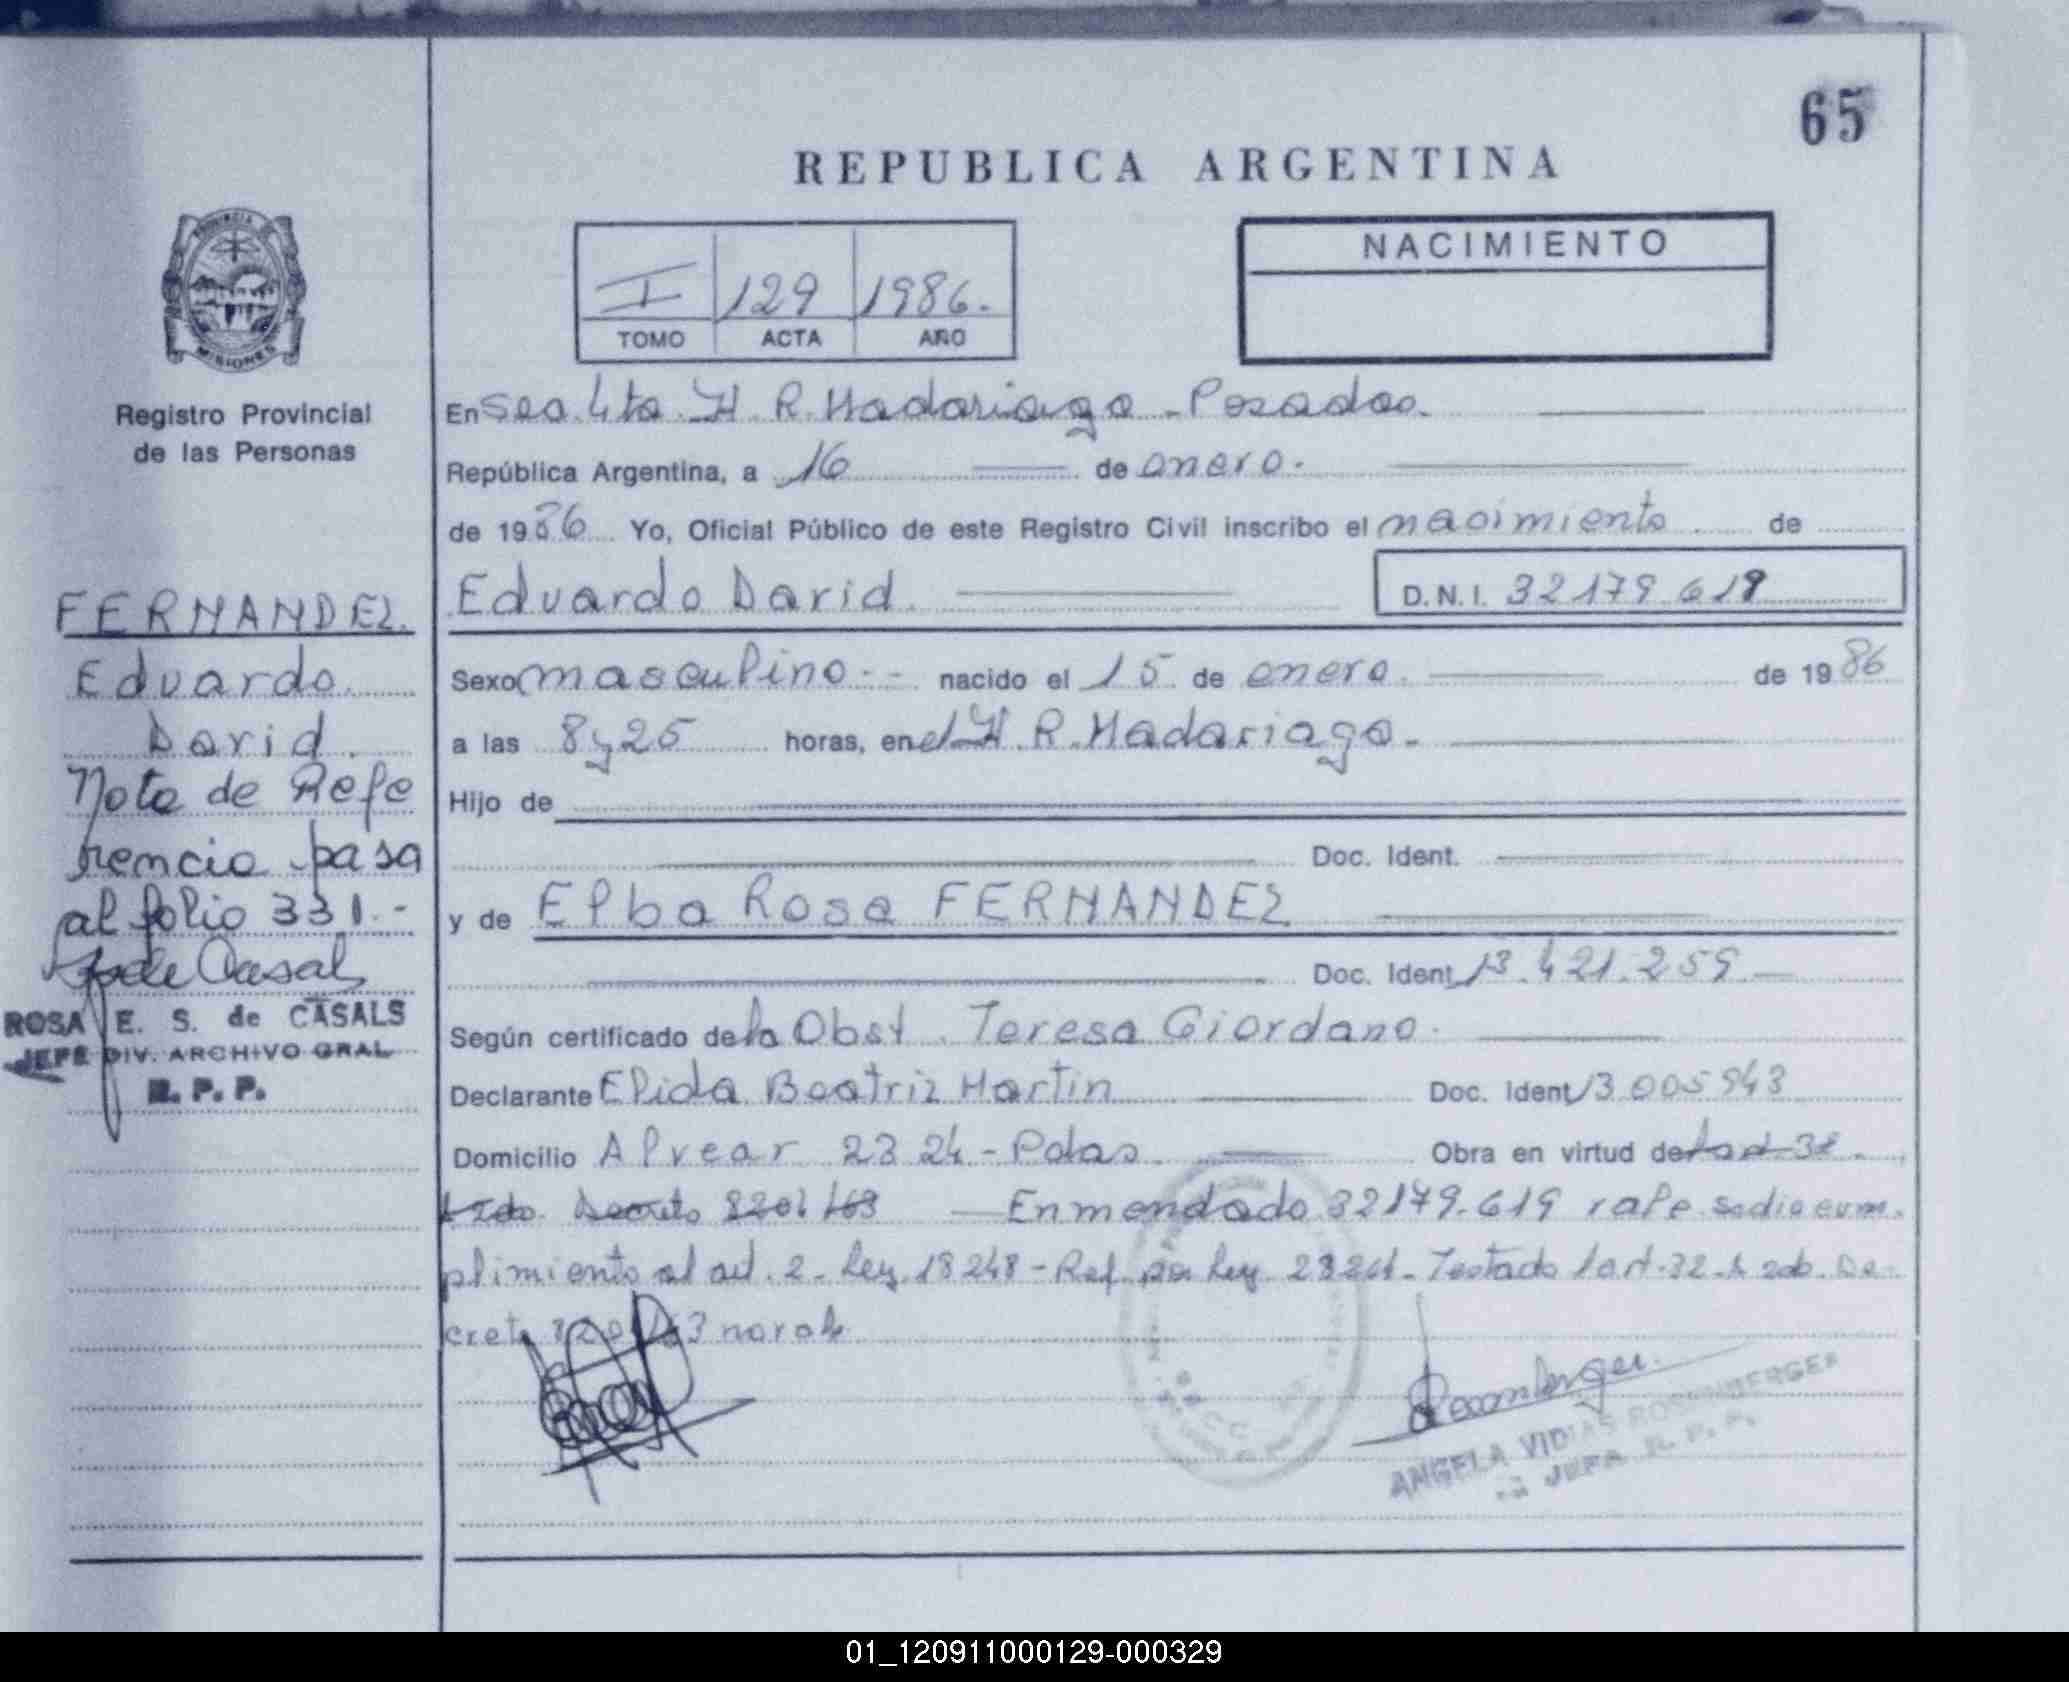 65
REPUBLICA ARGENTINA
PROVINCIA DE
MISIONES
Registro Provincial
de las Personas
I 129 1986.
TOMO ACTA AÑO
NACIMIENTO
En Sec. 4ta. H. R. Madariaga - Posadas.
República Argentina, a 16 de enero.
de 1986 Yo, Oficial Público de este Registro Civil inscribo el nacimiento de
Eduardo David. D.N.I. 32179.619
Sexo masculino - - nacido el 15 de enero. de 1986
a las 8 y 25 horas, en el H. R. Madariaga.
Hijo de
Doc. Ident.
y de Elba Rosa FERNANDEZ
Doc. Ident. 13.421.259
Según certificado de la Obst. Teresa Giordano.
Declarante Elida Beatriz Martin Doc. Ident. 13.005943
Domicilio Alvear 2324 - Pdas Obra en virtud de 1 art 32.
Decreto 8204/63 Enmendado 32179.619 vale se dio cum-
plimiento al art. 2 - Ley 18248 - Ref. por Ley 23264 - Testado 1 art. 32. De-
creto 8204/63 no vale
FERNANDEZ.
Eduardo
David.
Nota de Refe
rencia pasa
al folio 331.-
ROSA E. S. de CASALS
JEFE DIV. ARCHIVO GRAL
R. P. P.
ANGELA VIDIAS ROSEMBERGER
JEFA R. P. P.
01_120911000129-000329